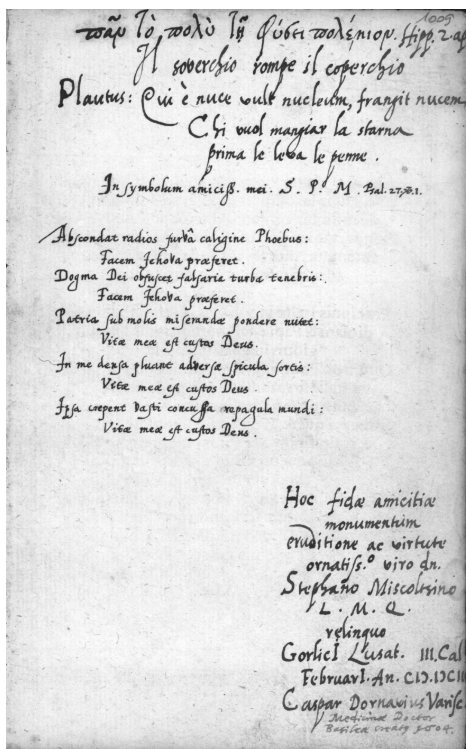 1009
πᾶν τὸ πολὺ τῇ φύσει πολέμιον. Hipp. 2. ap
Il soverchio rompe il coperchio
Plautus: Qui è nuce vult nucleum, frangit nucem
Chi vuol mangiar la starna
prima le leva le penne.
In symbolum amiciss. mei. S. P. M. Psal. 27. ℣. 1.
Abscondat radios furvâ caligine Phoebus:
Facem Jehova præferet.
Dogma Dei obfuscet falsaria turba tenebris:
Facem Jehova præferet.
Patria sub molis miserandæ pondere nutet:
Vitæ meæ est custos Deus.
In me densa pluant adversæ spicula sortis:
Vitæ meæ est custos Deus
Ipsa crepent vasti concussa repagula mundi:
Vitæ meæ est custos Deus.
Hoc fidæ amicitiæ
monumentum
eruditione ac virtute
ornatiss.º viro dn.
Stephano Miscoltsino
L. M. Q.
relinquo
GorlicI Lusat. III. Cal
FebruarI. An. CIↃ.IↃCII
Caspar Dornavius Varisc
Medicinæ Doctor
Basileæ creatg 1604.